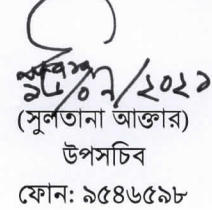 /০৭/২০২১
(সুলতানা আক্তার)
উপসচিব
ফোন: ৯৫৪৬৫৯৮